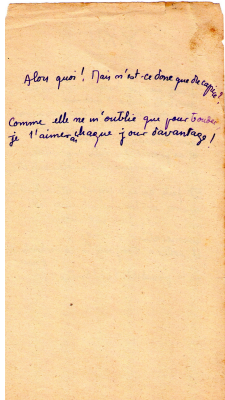 Alors quoi! Mais n'est-ce donc que du caprice?
Comme elle ne m'oublie que pour
je l'aimerai chaque jour davantage!